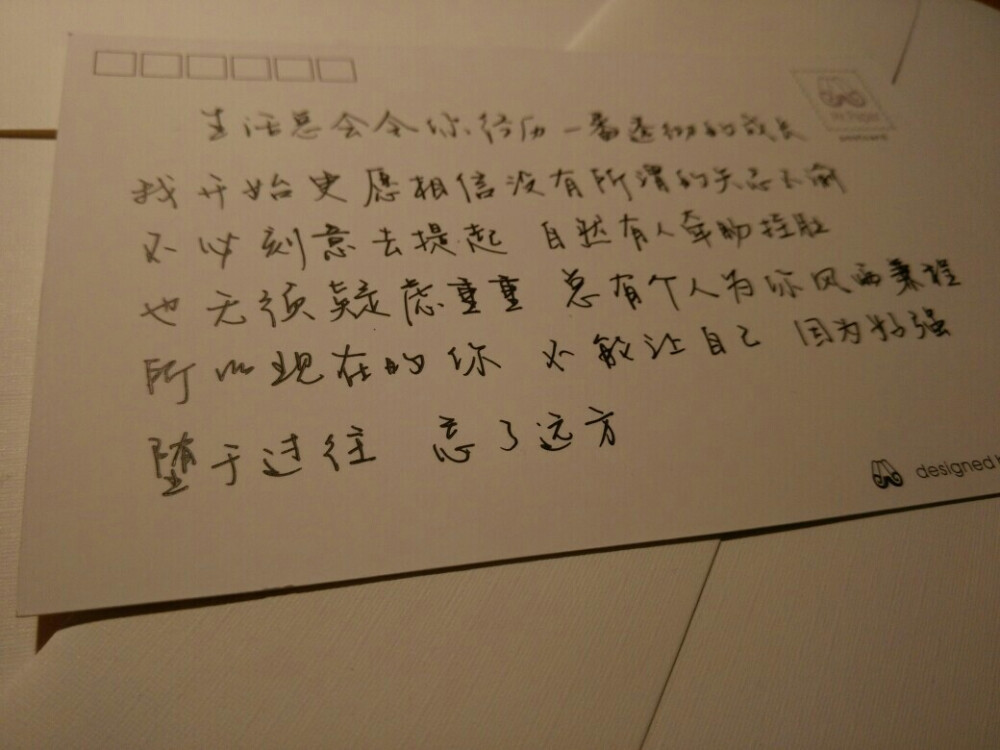 生活总会令你经历一番透彻的成长
Mr Paper
postcard
我开始更愿相信没有所谓的矢志不渝
不必刻意去提起 自然有人牵肠挂肚
也无须疑虑重重 总有个人为你风雨兼程
所以现在的你 不敢让自己 因为好强
堕于过往 忘了远方
designed